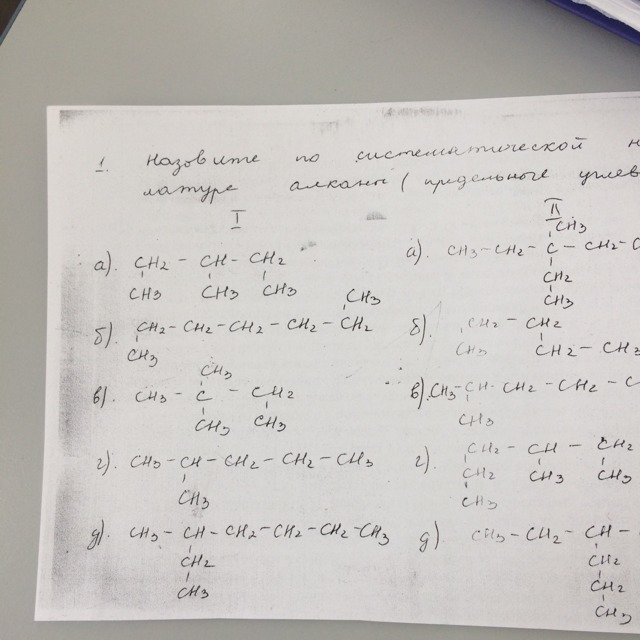 1. Назовите по систематической н
латуре алканы (предельные углев
I II
а). CH₂ - CH - CH₂
CH₃ CH₃ CH₃
б). CH₂ - CH₂ - CH₂ - CH₂ - CH₂
CH₃
CH₃
в). CH₃ - C - CH₂
CH₃
CH₃ CH₃
г). CH₃ - CH - CH₂ - CH₂ - CH₃
CH₃
д). CH₃ - CH - CH₂ - CH₂ - CH₂ - CH₃
CH₂
CH₃
CH₃
а). CH₃ - CH₂ - C - CH₂ - C
CH₂
CH₃
б). CH₂ - CH₂
CH₃ CH₂ - CH₂
в). CH₃ - CH - CH₂ - CH₂ - C
CH₃
г). CH₂ - CH - CH₂
CH₂ CH₃ CH₃
CH₃
д) CH₃ - CH₂ - CH -
CH₂
CH₂
CH₃